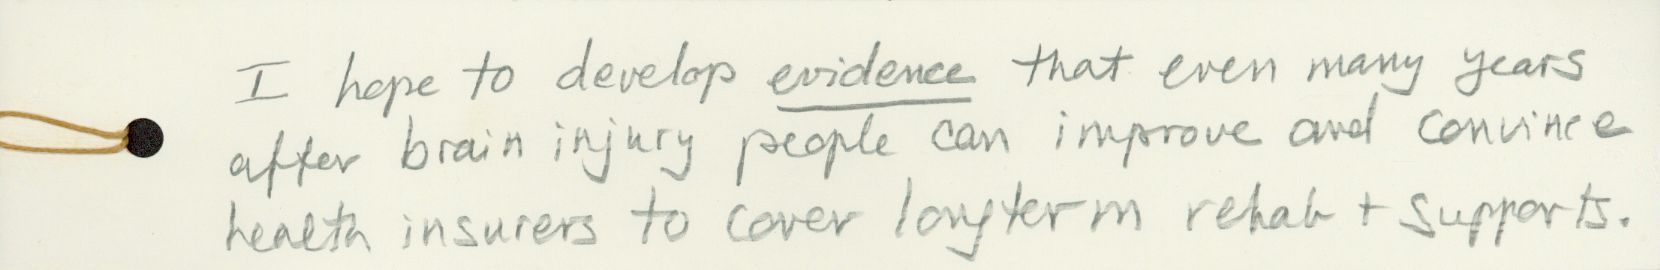 I hope to develop evidence that even many years
after brain injury people can improve and convince
health insurers to cover longterm rehab + supports.